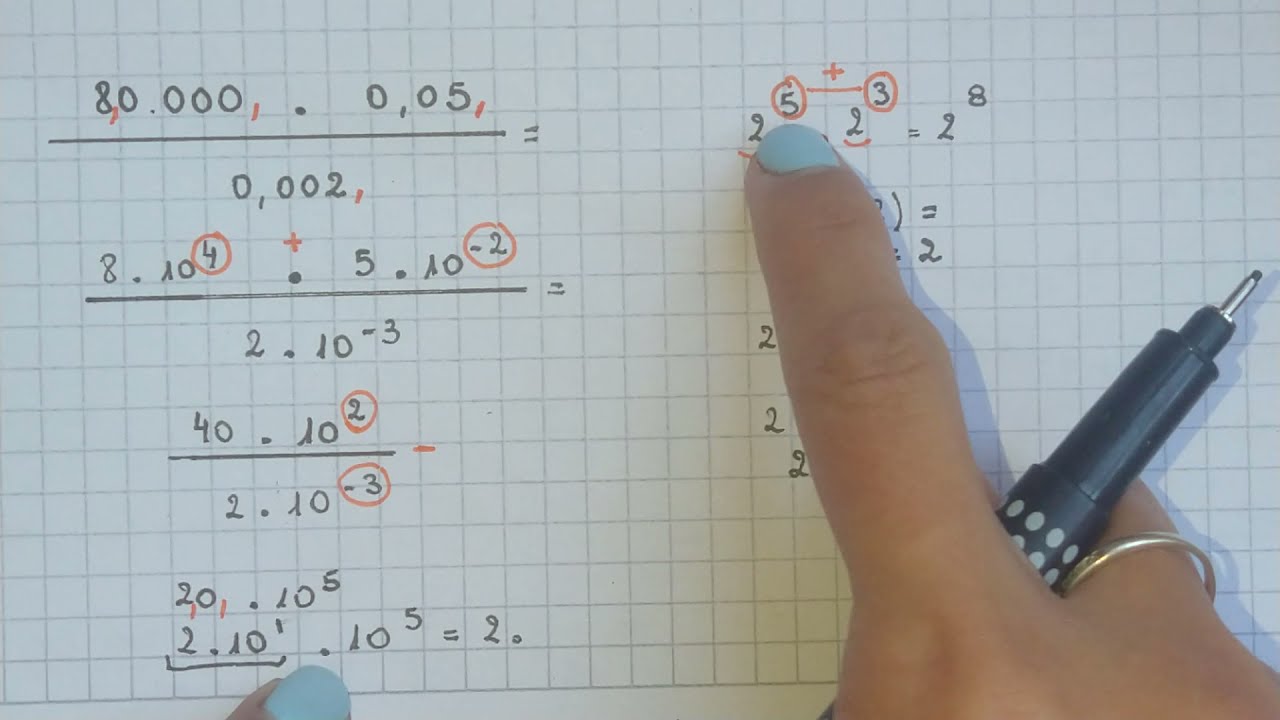 80.000, . 0,05, =
0,002,
8 . 10^4 + . 5 . 10^-2 =
2 . 10^-3
40 . 10^2 -
2 . 10^-3
20, . 10^5
2 . 10^1 . 10^5 = 2 .
2^5 + . 2^3 = 2^8
) =
: 2
2
2
2